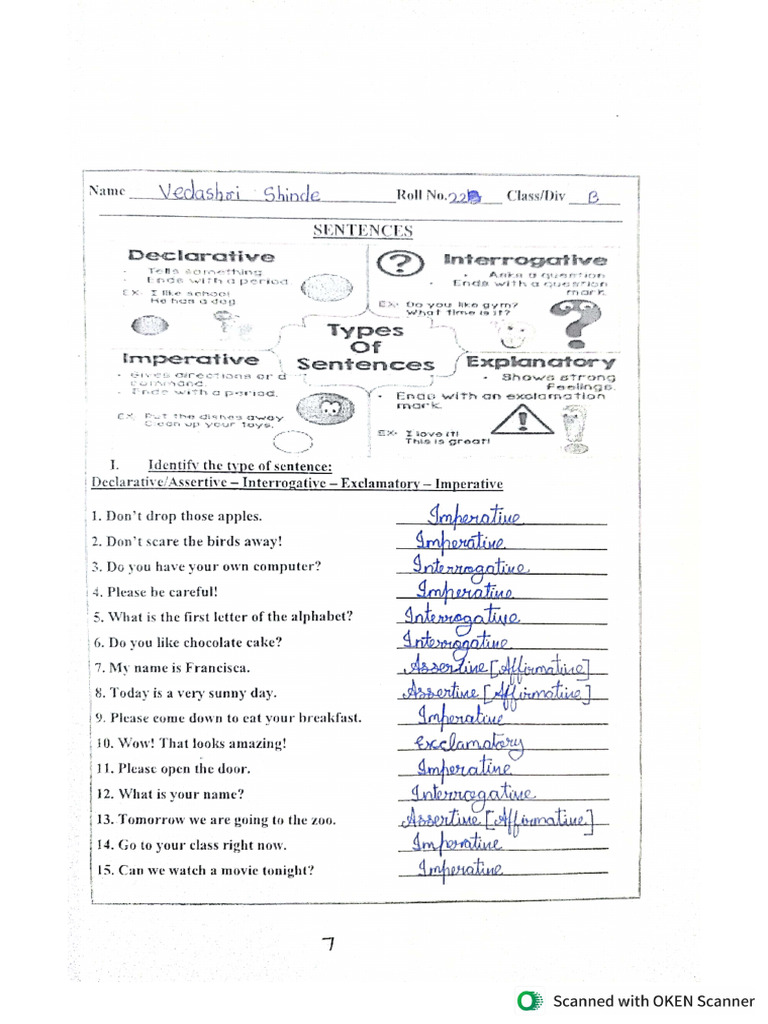 Name Vedashri Shinde Roll No. 22 Class/Div B
SENTENCES
Declarative
- Tells something
- Ends with a period.
EX: I like school
He has a dog
Interrogative
- Asks a question
- Ends with a question
mark.
EX: Do you like gym?
What time is it?
Types
Of
Sentences
Imperative
- Gives directions or a
command.
- Ends with a period.
EX: Put the dishes away
Clean up your toys.
Explanatory
- Shows strong
feelings.
- Ends with an exclamation
mark.
EX: I love it!
This is great!
I. Identify the type of sentence:
Declarative/Assertive – Interrogative – Exclamatory – Imperative
1. Don't drop those apples. Imperative
2. Don't scare the birds away! Imperative
3. Do you have your own computer? Interrogative
4. Please be careful! Imperative
5. What is the first letter of the alphabet? Interrogative
6. Do you like chocolate cake? Interrogative
7. My name is Francisca. Assertive [Affirmative]
8. Today is a very sunny day. Assertive [Affirmative]
9. Please come down to eat your breakfast. Imperative
10. Wow! That looks amazing! Exclamatory
11. Please open the door. Imperative
12. What is your name? Interrogative
13. Tomorrow we are going to the zoo. Assertive [Affirmative]
14. Go to your class right now. Imperative
15. Can we watch a movie tonight? Imperative
7
Scanned with OKEN Scanner